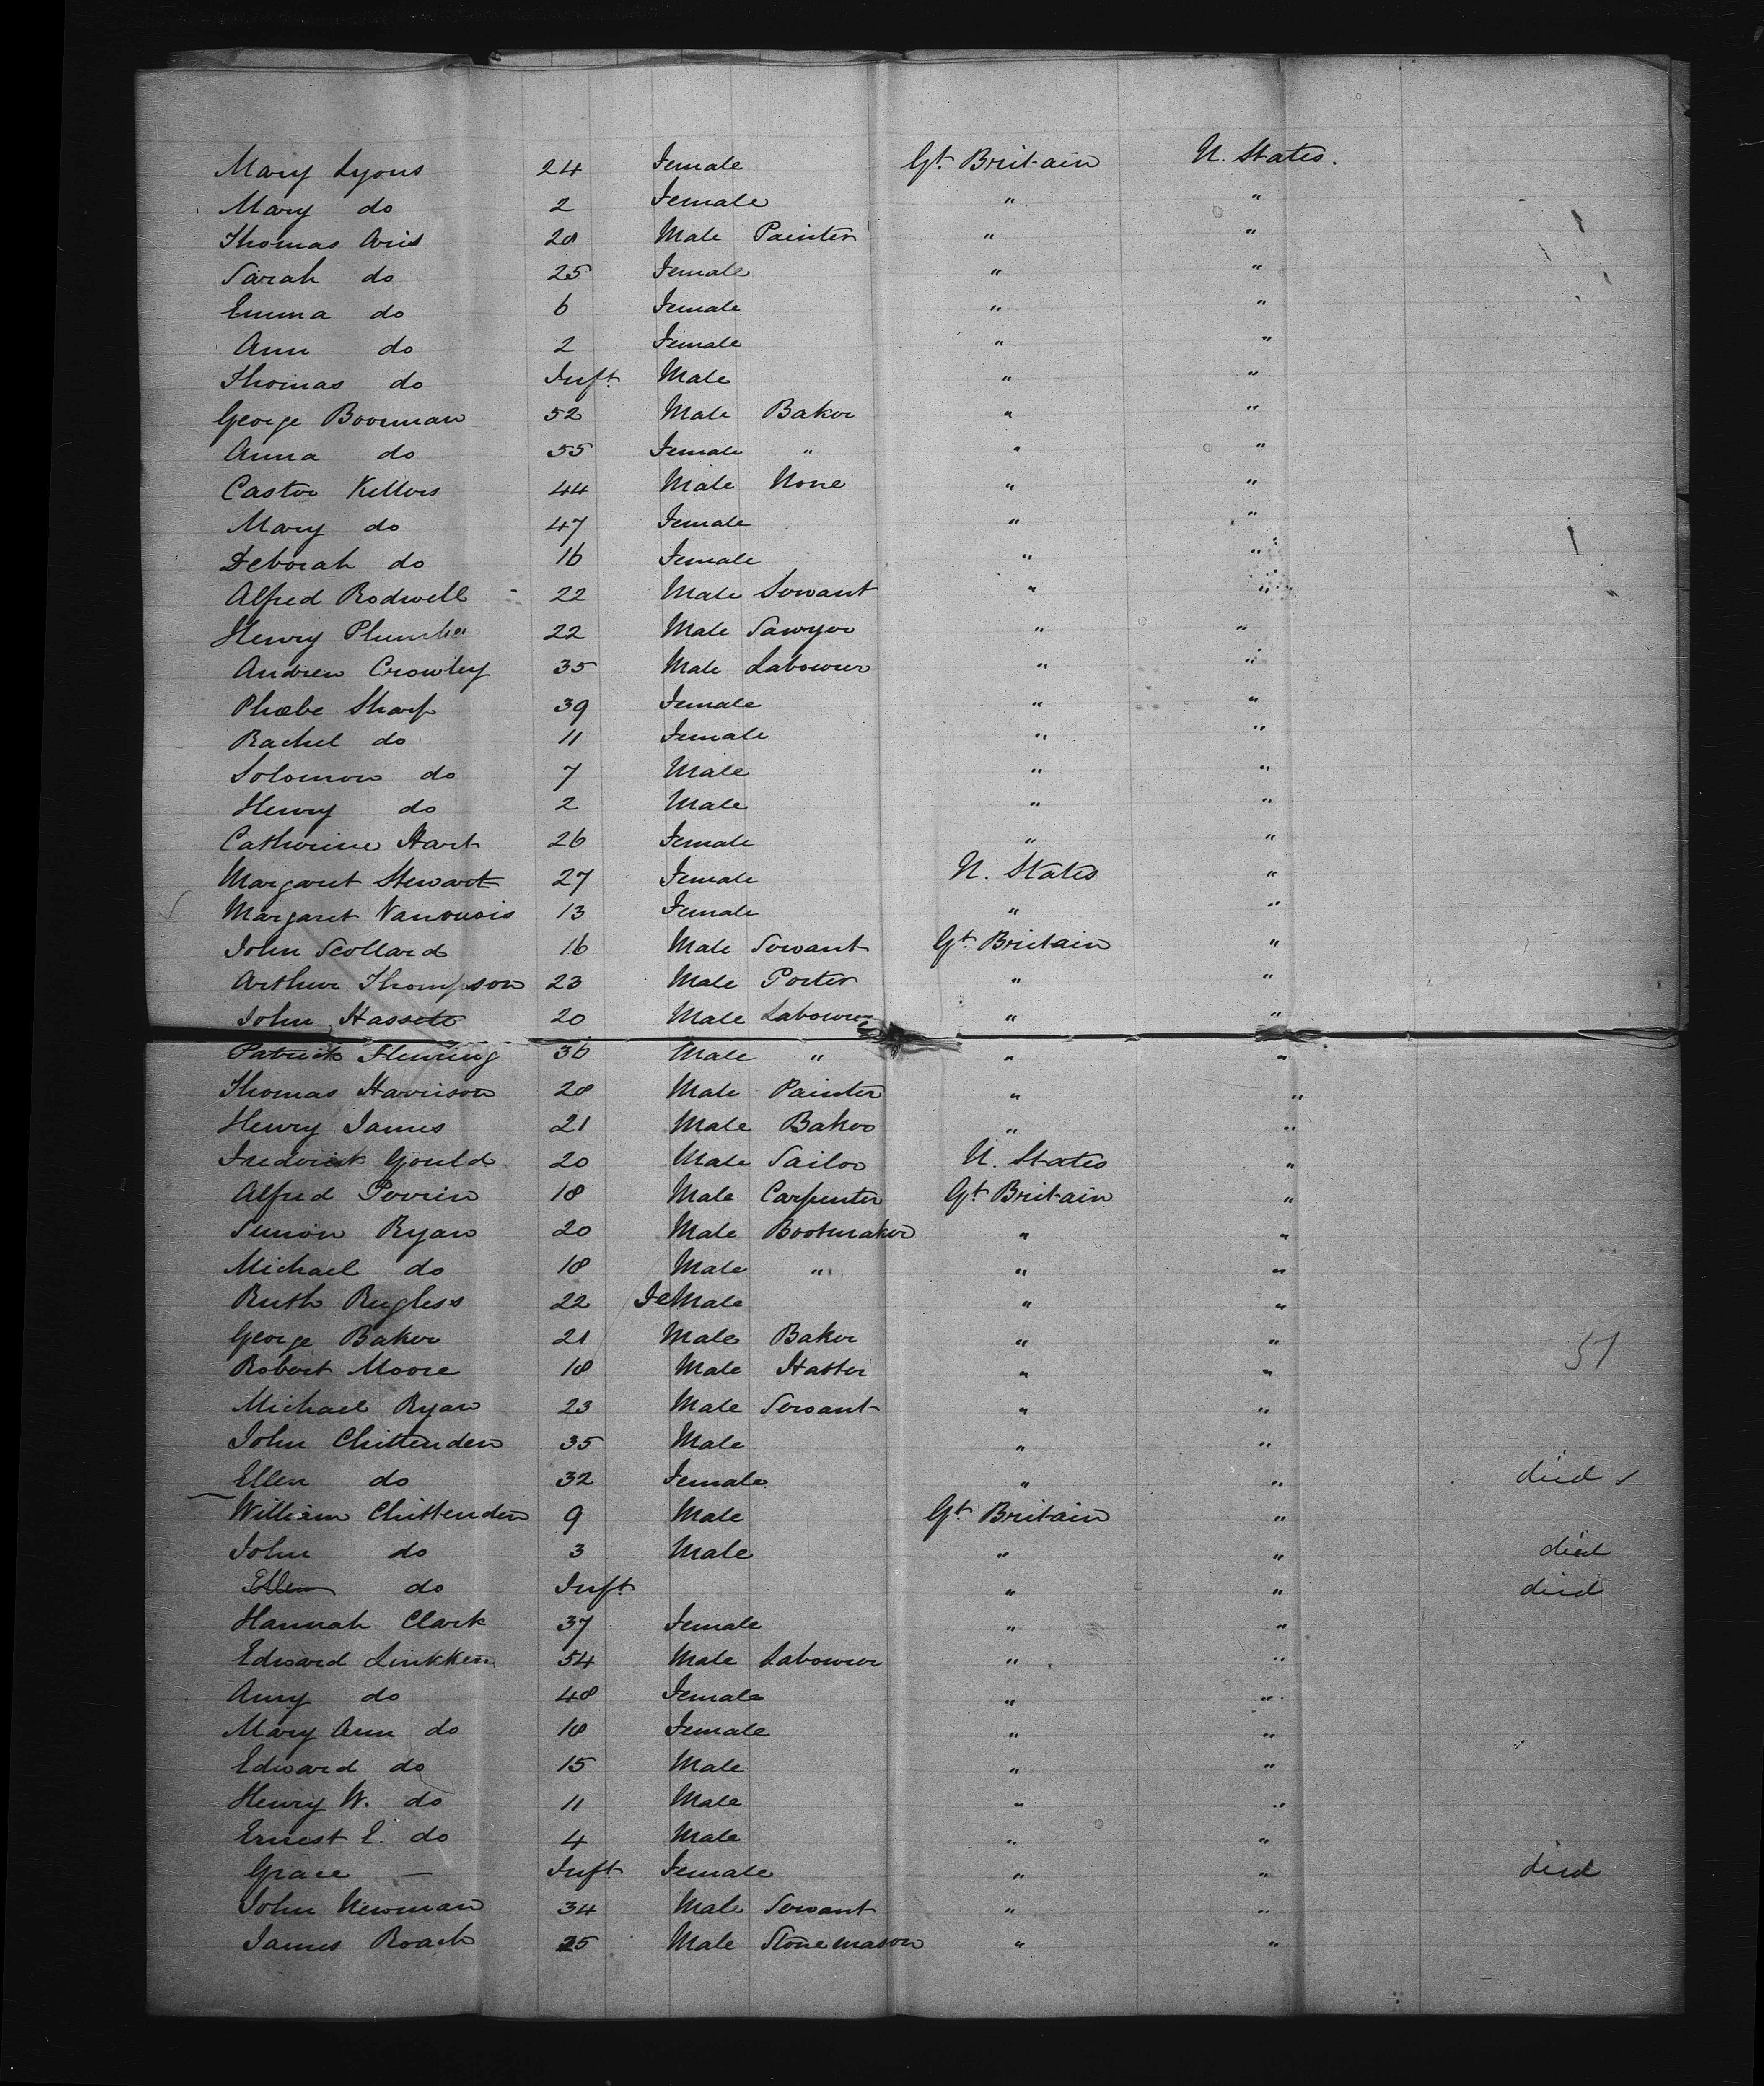 Mary Lyons 24 Female Gt. Britain U. States.
Mary do 2 Female " "
Thomas Avis 28 Male Painter " "
Sarah do 25 Female " "
Emma do 6 Female " "
Ann do 2 Female " "
Thomas do Inft. Male " "
George Boorman 52 Male Baker " "
Anna do 55 Female " " "
Castor Kellers 44 Male None " "
Mary do 47 Female " "
Deborah do 16 Female " "
Alfred Rodwell 22 Male Servant " "
Henry 22 Male Sawyer " "
Andrew Crowley 35 Male Labourer " "
Phœbe Sharp 39 Female " "
Rachel do 11 Female " "
Solomon do 7 Male " "
Henry do 2 Male " "
Catherine Hart 26 Female " "
Margaret Stewart 27 Female U. States "
Margaret 13 Female " "
John Scollard 16 Male Servant Gt. Britain "
Arthur Thompson 23 Male Porter " "
John Hassett 20 Male Labourer " "
Patrick Fleming 36 Male " " "
Thomas Harrison 28 Male Painter " "
Henry James 21 Male Baker " "
Frederick Gould 20 Male Sailor U. States "
Alfred Perrin 18 Male Carpenter Gt. Britain "
Simon Ryan 20 Male Bootmaker " "
Michael do 18 Male " " "
Ruth Rugless 22 FeMale " "
George Baker 21 Male Baker " " 51
Robert Moore 18 Male Hatter " "
Michael Ryan 23 Male Servant " "
John Chittenden 35 Male " "
Ellen do 32 Female " " died
William Chittenden 9 Male Gt. Britain "
John do 3 Male " " died
Ellen do Inft. " " died
Hannah Clark 37 Female " "
Edward Linkken 54 Male Labourer " "
Amy do 48 Female " "
Mary Ann do 18 Female " "
Edward do 15 Male " "
Henry W. do 11 Male " "
Ernest E. do 4 Male " "
Grace — Inft. Female " " died
John Newman 34 Male Servant " "
James Roach 25 Male Stonemason " "